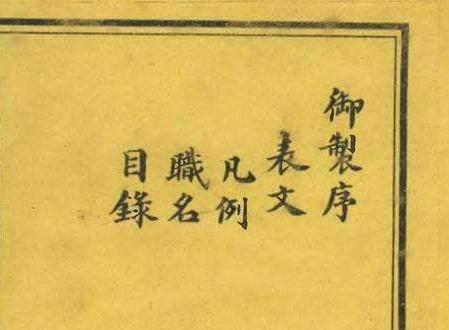 御製序
表文
凡例
職名
目錄